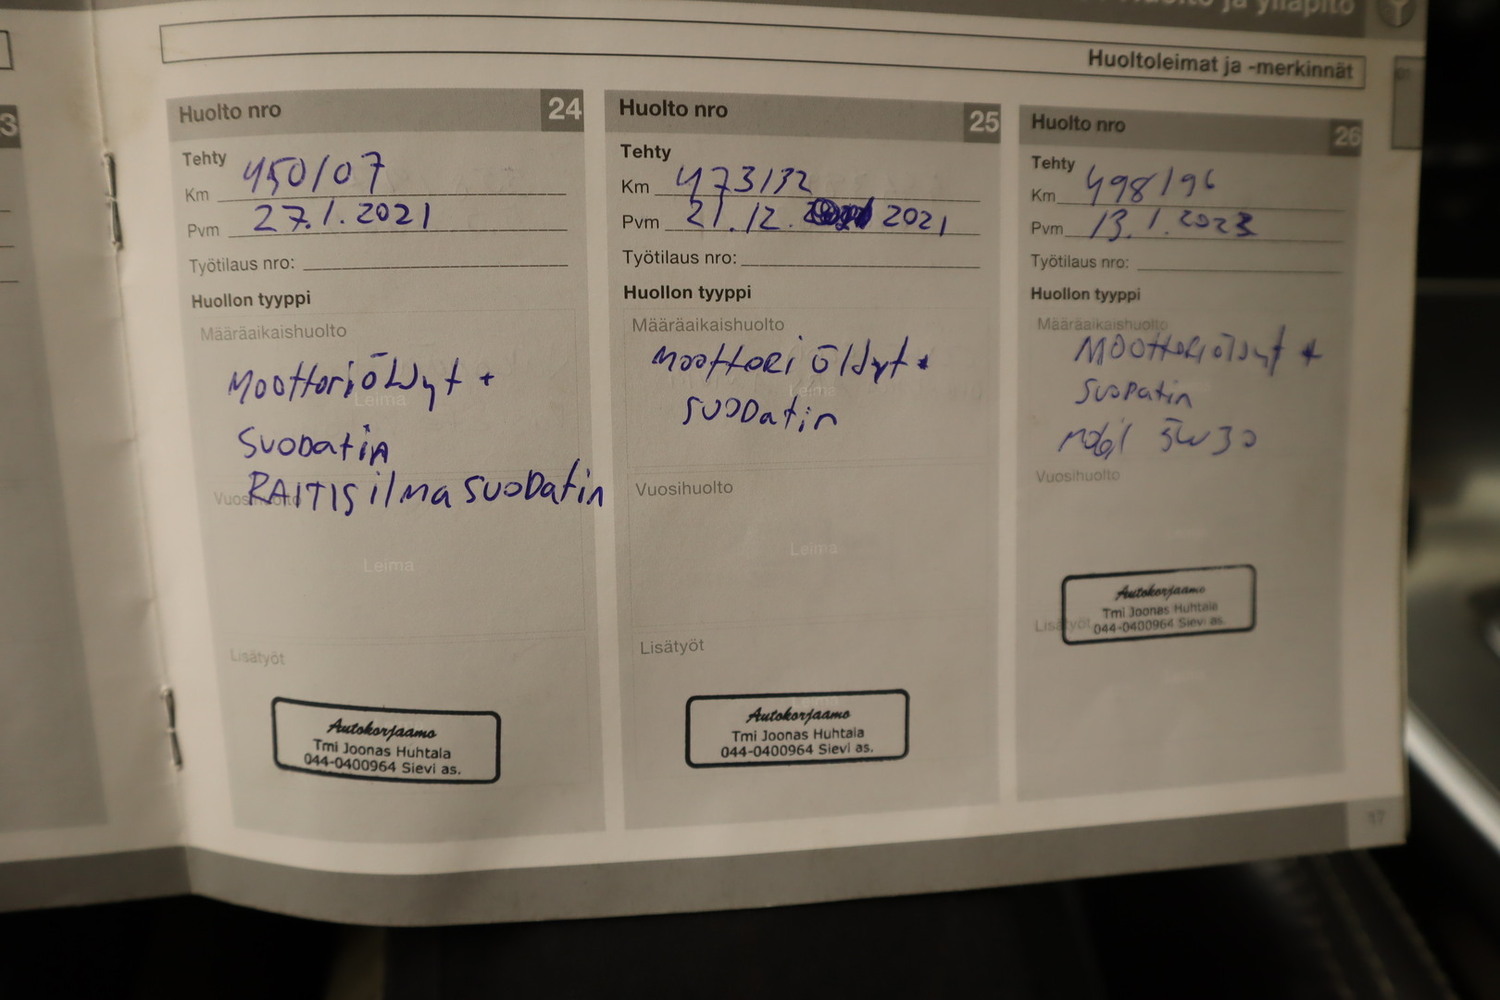 Huolto ja ylläpito
Huoltoleimat ja -merkinnät
3
Huolto nro 24
Tehty
Km 450/07
Pvm 27.1.2021
Työtilaus nro:
Huollon tyyppi
Määräaikaishuolto
Moottoriöljyt +
Leima
Suodatin
Vuosihuolto
RAITIS ilma suodatin
Leima
Lisätyöt
Autokorjaamo
Tmi Joonas Huhtala
044-0400964 Sievi as.
Huolto nro 25
Tehty
Km 473/32
Pvm 21.12. 2021
Työtilaus nro:
Huollon tyyppi
Määräaikaishuolto
Moottori öljyt +
Leima
suodatin
Vuosihuolto
Leima
Lisätyöt
Autokorjaamo
Tmi Joonas Huhtala
044-0400964 Sievi as.
Huolto nro 26
Tehty
Km 498/96
Pvm 13.1.2023
Työtilaus nro:
Huollon tyyppi
Määräaikaishuolto
Moottoriöljyt +
suodatin
mobil 5w30
Vuosihuolto
Lisätyöt
Autokorjaamo
Tmi Joonas Huhtala
044-0400964 Sievi as.
17